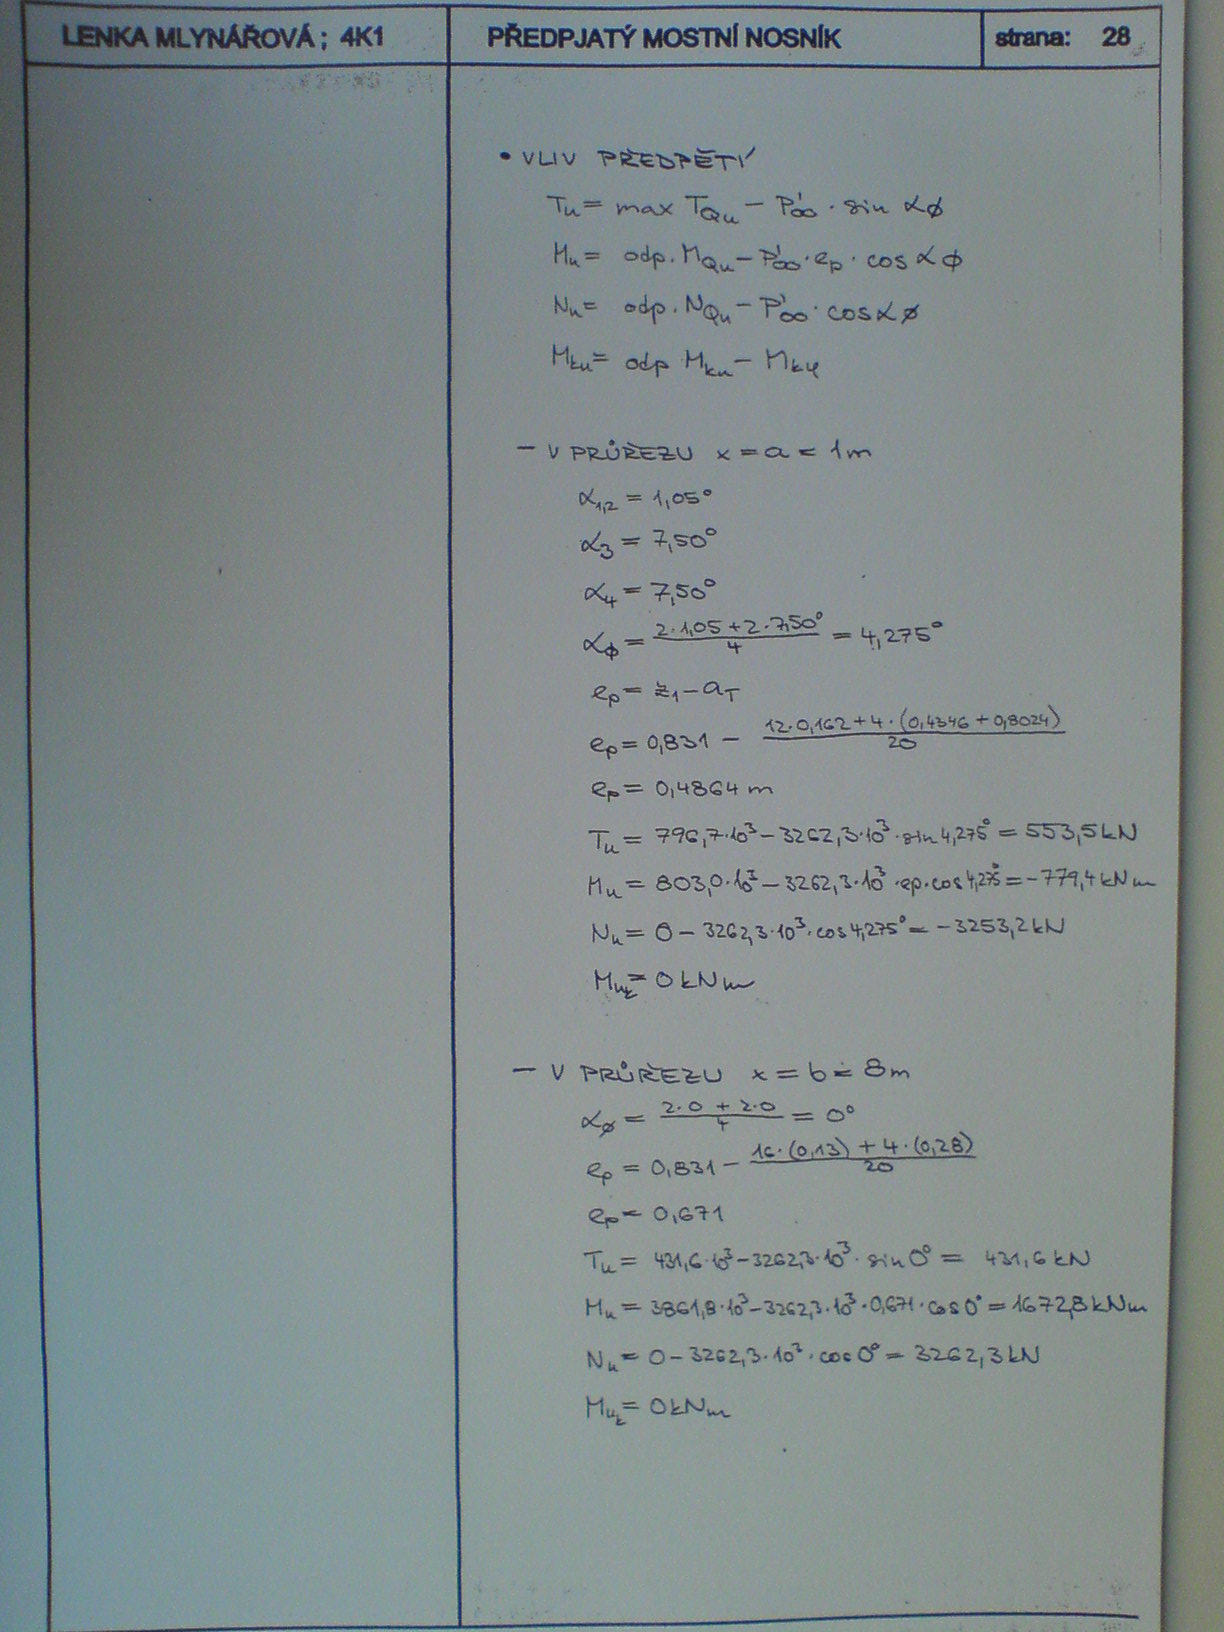 LENKA MLYNÁŘOVÁ; 4K1
PŘEDPJATÝ MOSTNÍ NOSNÍK
strana: 28
• VLIV PŘEDPĚTÍ
Tu = max TQu - P'∞ · sin αφ
Mu = odp. MQu - P'∞ · ep · cos αφ
Nu = odp. NQu - P'∞ · cos αφ
Mku = odp Mku - Mkφ
- V PRŮŘEZU x = a = 1m
α1,2 = 1,05°
α3 = 7,50°
α4 = 7,50°
αφ = (2·1,05 + 2·7,50°)/4 = 4,275°
ep = z1 - aT
ep = 0,831 - (12·0,162 + 4·(0,4346 + 0,8024))/20
ep = 0,4864 m
Tu = 796,7·10³ - 3262,3·10³ · sin 4,275° = 553,5 kN
Mu = 803,0·10³ - 3262,3·10³ · ep · cos 4,275° = -779,4 kNm
Nu = 0 - 3262,3·10³ · cos 4,275° = -3253,2 kN
Muk = 0 kNm
- V PRŮŘEZU x = b = 8m
αφ = (2·0 + 2·0)/4 = 0°
ep = 0,831 - (16·(0,13) + 4·(0,28))/20
ep = 0,671
Tu = 431,6·10³ - 3262,3·10³ · sin 0° = 431,6 kN
Mu = 3861,8·10³ - 3262,3·10³ · 0,671 · cos 0° = 1672,8 kNm
Nu = 0 - 3262,3·10³ · cos 0° = 3262,3 kN
Muk = 0 kNm